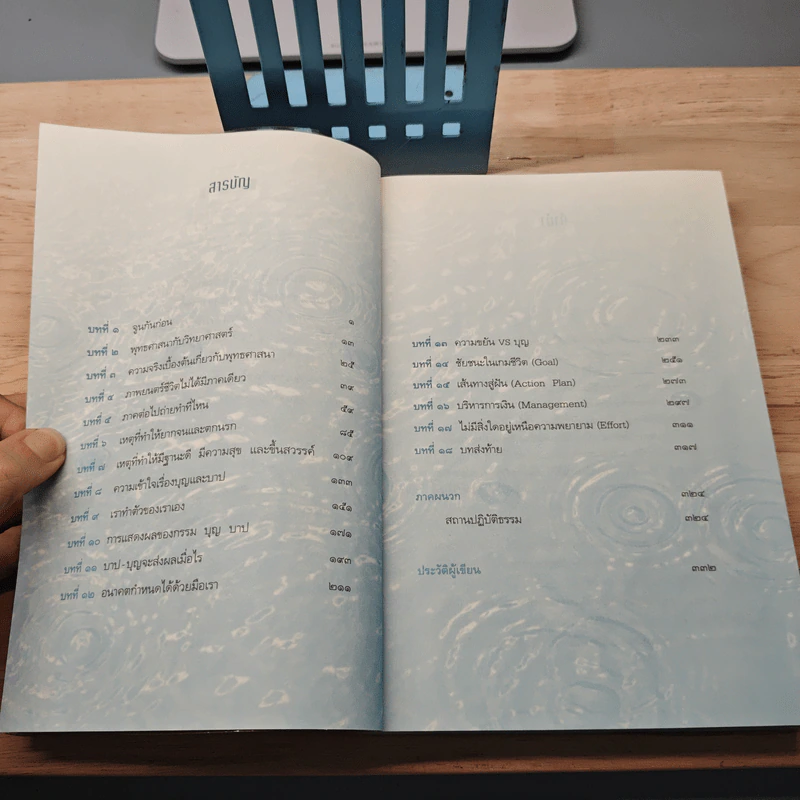 สารบัญ
บทที่ ๑ จูนกันก่อน ๑
บทที่ ๒ พุทธศาสนากับวิทยาศาสตร์ ๑๓
บทที่ ๓ ความจริงเบื้องต้นเกี่ยวกับพุทธศาสนา ๒๕
บทที่ ๔ ภาพยนตร์ชีวิตไม่ได้มีภาคเดียว ๓๙
บทที่ ๕ ภาคต่อไปถ่ายทำที่ไหน ๕๙
บทที่ ๖ เหตุที่ทำให้ยากจนและตกนรก ๘๕
บทที่ ๗ เหตุที่ทำให้มีฐานะดี มีความสุข และขึ้นสวรรค์ ๑๐๙
บทที่ ๘ ความเข้าใจเรื่องบุญและบาป ๑๓๓
บทที่ ๙ เราทำตัวของเราเอง ๑๕๑
บทที่ ๑๐ การแสดงผลของกรรม บุญ บาป ๑๗๑
บทที่ ๑๑ บาป-บุญจะส่งผลเมื่อไร ๑๙๓
บทที่ ๑๒ อนาคตกำหนดได้ด้วยมือเรา ๒๑๑
บทที่ ๑๓ ความขยัน VS บุญ ๒๓๓
บทที่ ๑๔ ชัยชนะในเกมชีวิต (Goal) ๒๕๑
บทที่ ๑๕ เส้นทางสู่ฝัน (Action Plan) ๒๗๓
บทที่ ๑๖ บริหารการเงิน (Management) ๒๙๗
บทที่ ๑๗ ไม่มีสิ่งใดอยู่เหนือความพยายาม (Effort) ๓๑๑
บทที่ ๑๘ บทส่งท้าย ๓๑๗
ภาคผนวก ๓๒๔
สถานปฏิบัติธรรม ๓๒๔
ประวัติผู้เขียน ๓๓๒